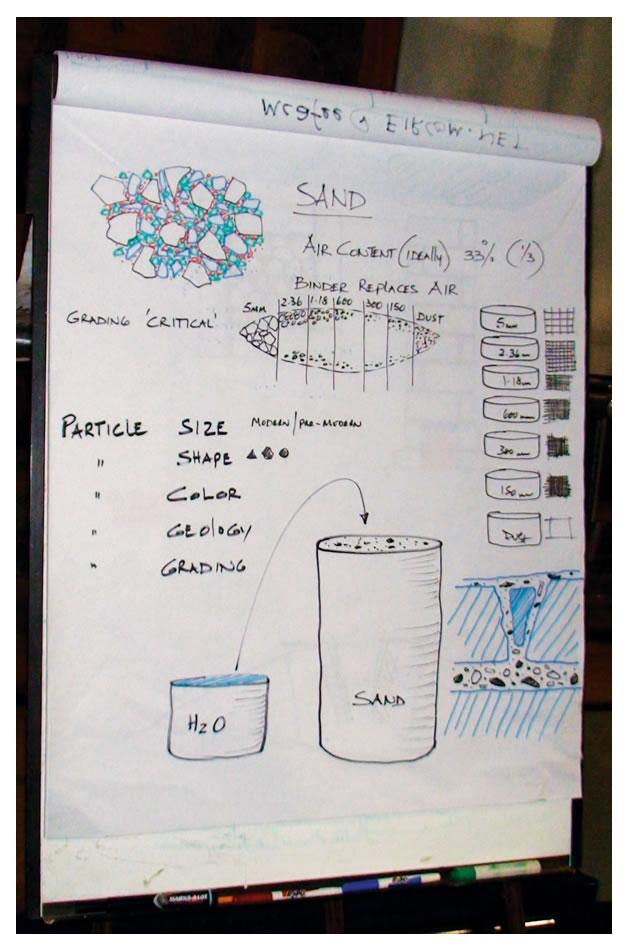 SAND
AIR CONTENT (IDEALLY) 33% (1/3)
BINDER REPLACES AIR
GRADING 'CRITICAL'
5MM 2.36 1.18 600 300 150 DUST
5mm
2.36m
1.18m
600mm
300m
150m
DUST
PARTICLE SIZE MODERN/PRE-MODERN
" SHAPE
" COLOR
" GEOLOGY
" GRADING
H2O
SAND
MARKS-A-LOT